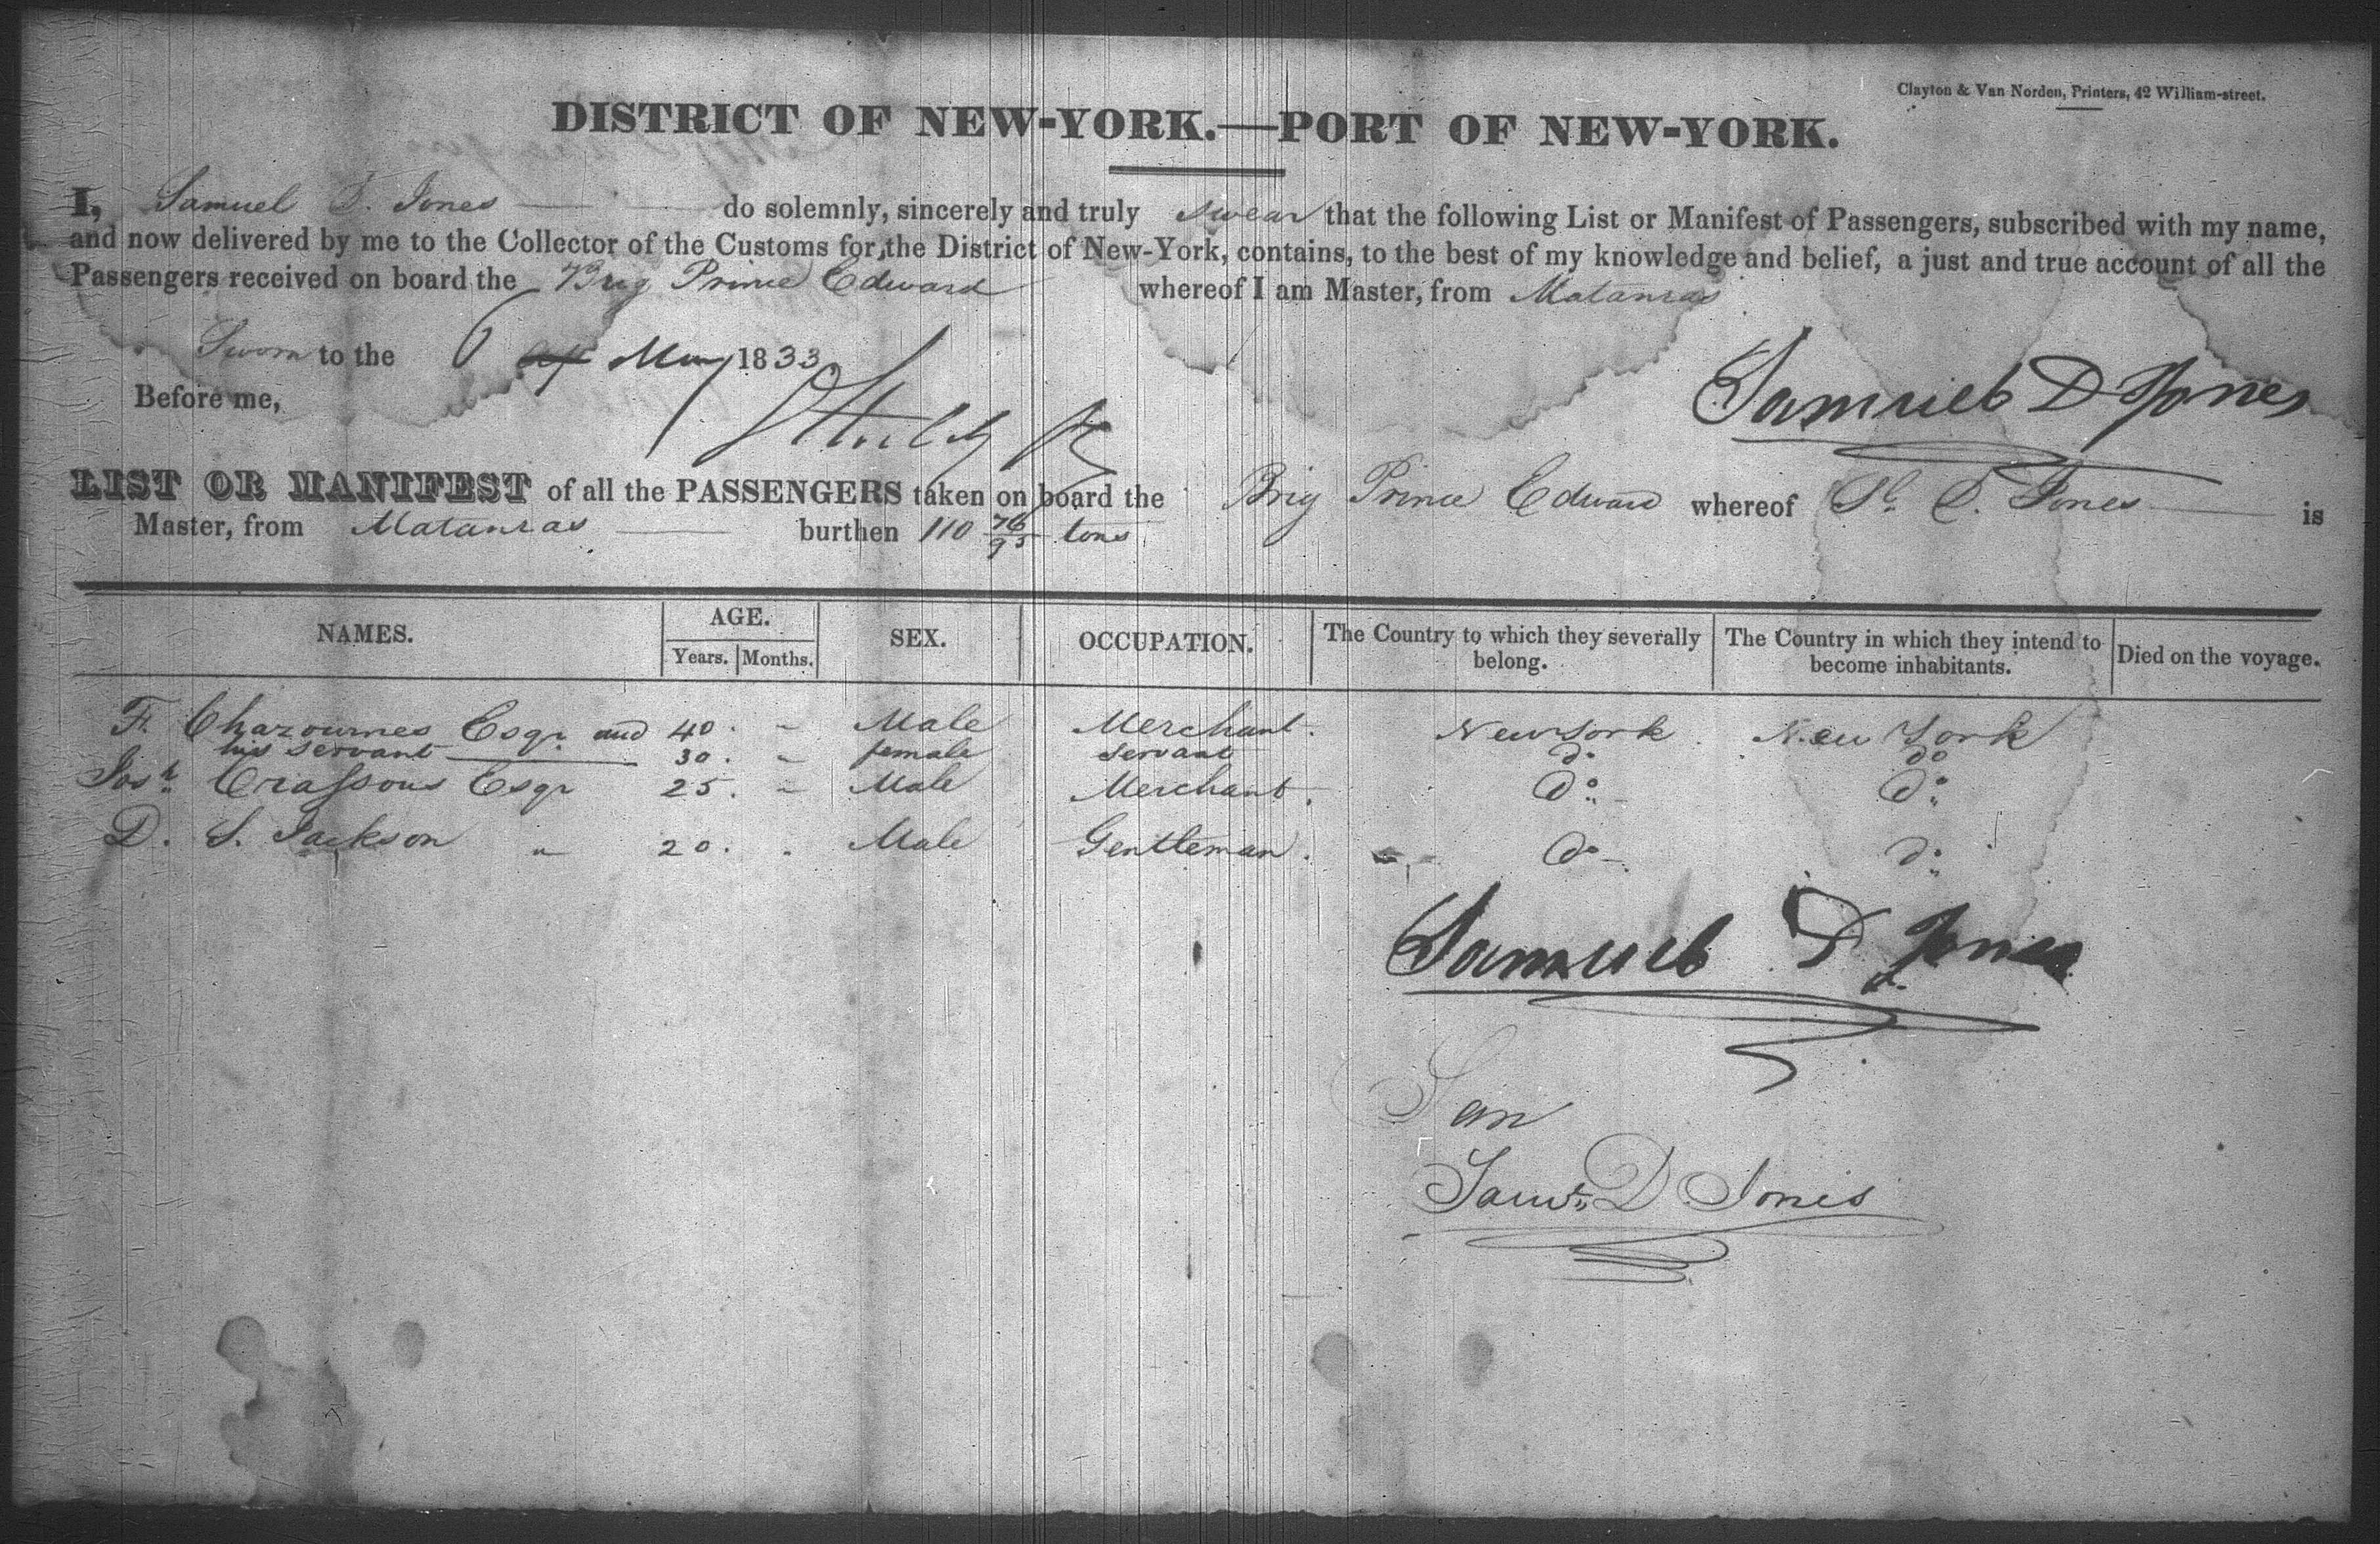 Clayton & Van Norden, Printers, 42 William-street.
DISTRICT OF NEW-YORK.—PORT OF NEW-YORK.
I, Samuel D. Jones do solemnly, sincerely and truly swear that the following List or Manifest of Passengers, subscribed with my name,
and now delivered by me to the Collector of the Customs for the District of New-York, contains, to the best of my knowledge and belief, a just and true account of all the
Passengers received on board the Brig Prince Edward whereof I am Master, from Matanzas
Sworn to the 6 May 1833
Before me,
Samuel D Jones
LIST OR MANIFEST of all the PASSENGERS taken on board the Brig Prince Edward whereof Sl. D. Jones is
Master, from Matanzas burthen 110 76/95 tons
NAMES. AGE. Years. Months. SEX. OCCUPATION. The Country to which they severally belong. The Country in which they intend to become inhabitants. Died on the voyage.
F. Chazournes Esqr. and 40. " Male Merchant. New York. New York
his servant 30. " female servant do do
Josh. Crassous Esqr 25. " Male Merchant. Do. Do.
D. S. Jackson " 20. " Male Gentleman. Do. do.
Samuel D Jones
Sam
Saml. D Jones